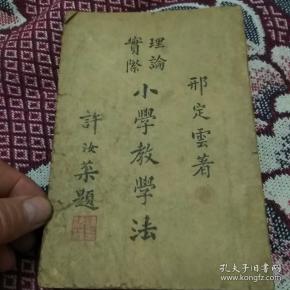 邢定雲著
理論
實際
小學教學法
許汝棻題
孔夫子旧书网